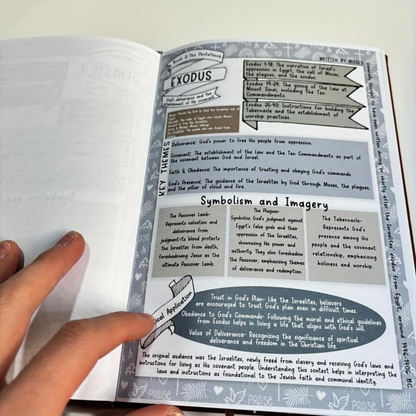 WRITTEN BY: MOSES
EXODUS
God's deliverance and the
establishment of the
Exodus 1-18: The narrative of Israel's
oppression in Egypt, the call of Moses,
the plagues, and the exodus
Exodus 19-24: The giving of the Law at
Mount Sinai, including the Ten
Commandments.
Exodus 25-40: Instructions for building
the Tabernacle and establishing
worship practices
KEY THEMES
Deliverance: God's power to free His people from oppression.
Covenant: The establishment of the Law and the Ten Commandments as part of
the covenant between God and Israel.
Faith & Obedience: The importance of trusting and obeying God's commands.
God's Presence: The guidance of the Israelites by God through Moses, the plagues,
and the pillar of cloud and fire.
Symbolism and Imagery
The Passover Lamb-
Represents salvation and
deliverance from
judgment-its blood protects
the Israelites from death,
foreshadowing Jesus as the
ultimate Passover Lamb.
The Plagues-
Symbolize God's judgment against
Egypt's false gods and their
oppression of the Israelites,
showcasing His power and
authority. They also foreshadow
the Passover, emphasizing themes
of deliverance and redemption.
The Tabernacle-
Represents God's
presence among His
people and the covenant
relationship, emphasizing
holiness and worship.
Application
Trust in God's Plan- Like the Israelites, believers
are encouraged to trust God's plan even in difficult times.
Obedience to God's Commands- Following the moral and ethical guidelines
from Exodus helps in living a life that aligns with God's will.
Value of Deliverance- Recognizing the significance of spiritual
deliverance and freedom in the Christian life
The original audience was the Israelites, newly freed from slavery and receiving God's laws and
instructions for living as His covenant people. Understanding this context helps in interpreting the
laws and instructions as foundational to the Jewish faith and communal identity.
PRAISE
PRAISE